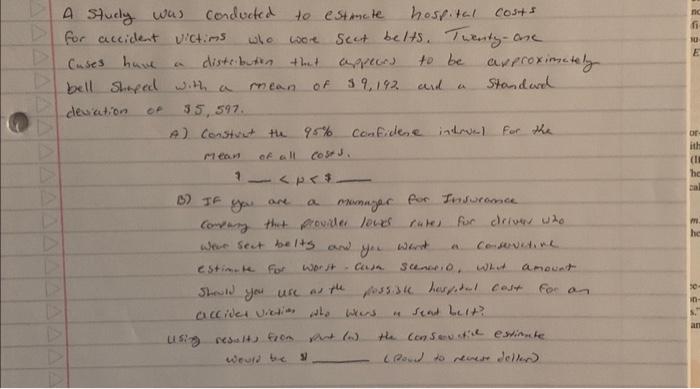 A Study was conducted to estimate hospital costs
for accident victims who wore seat belts. Twenty-one
Cases have a distribution that appears to be approximately
bell Shaped with a mean of $9,192 and a Standard
deviation of $5,597.
A) Construct the 95% Confidence interval for the
mean of all costs.
$ __ < μ < $ __
B) If you are a manager for Insurance
Company that provides lower rates for drivers who
wear seat belts and you want a conservative
estimate for worst-case scenario, what amount
should you use as the possible hospital cost for an
accident victim who wears a seat belt?
Using results from part (a) the conservative estimate
would be $ ____ (Round to nearest dollar)